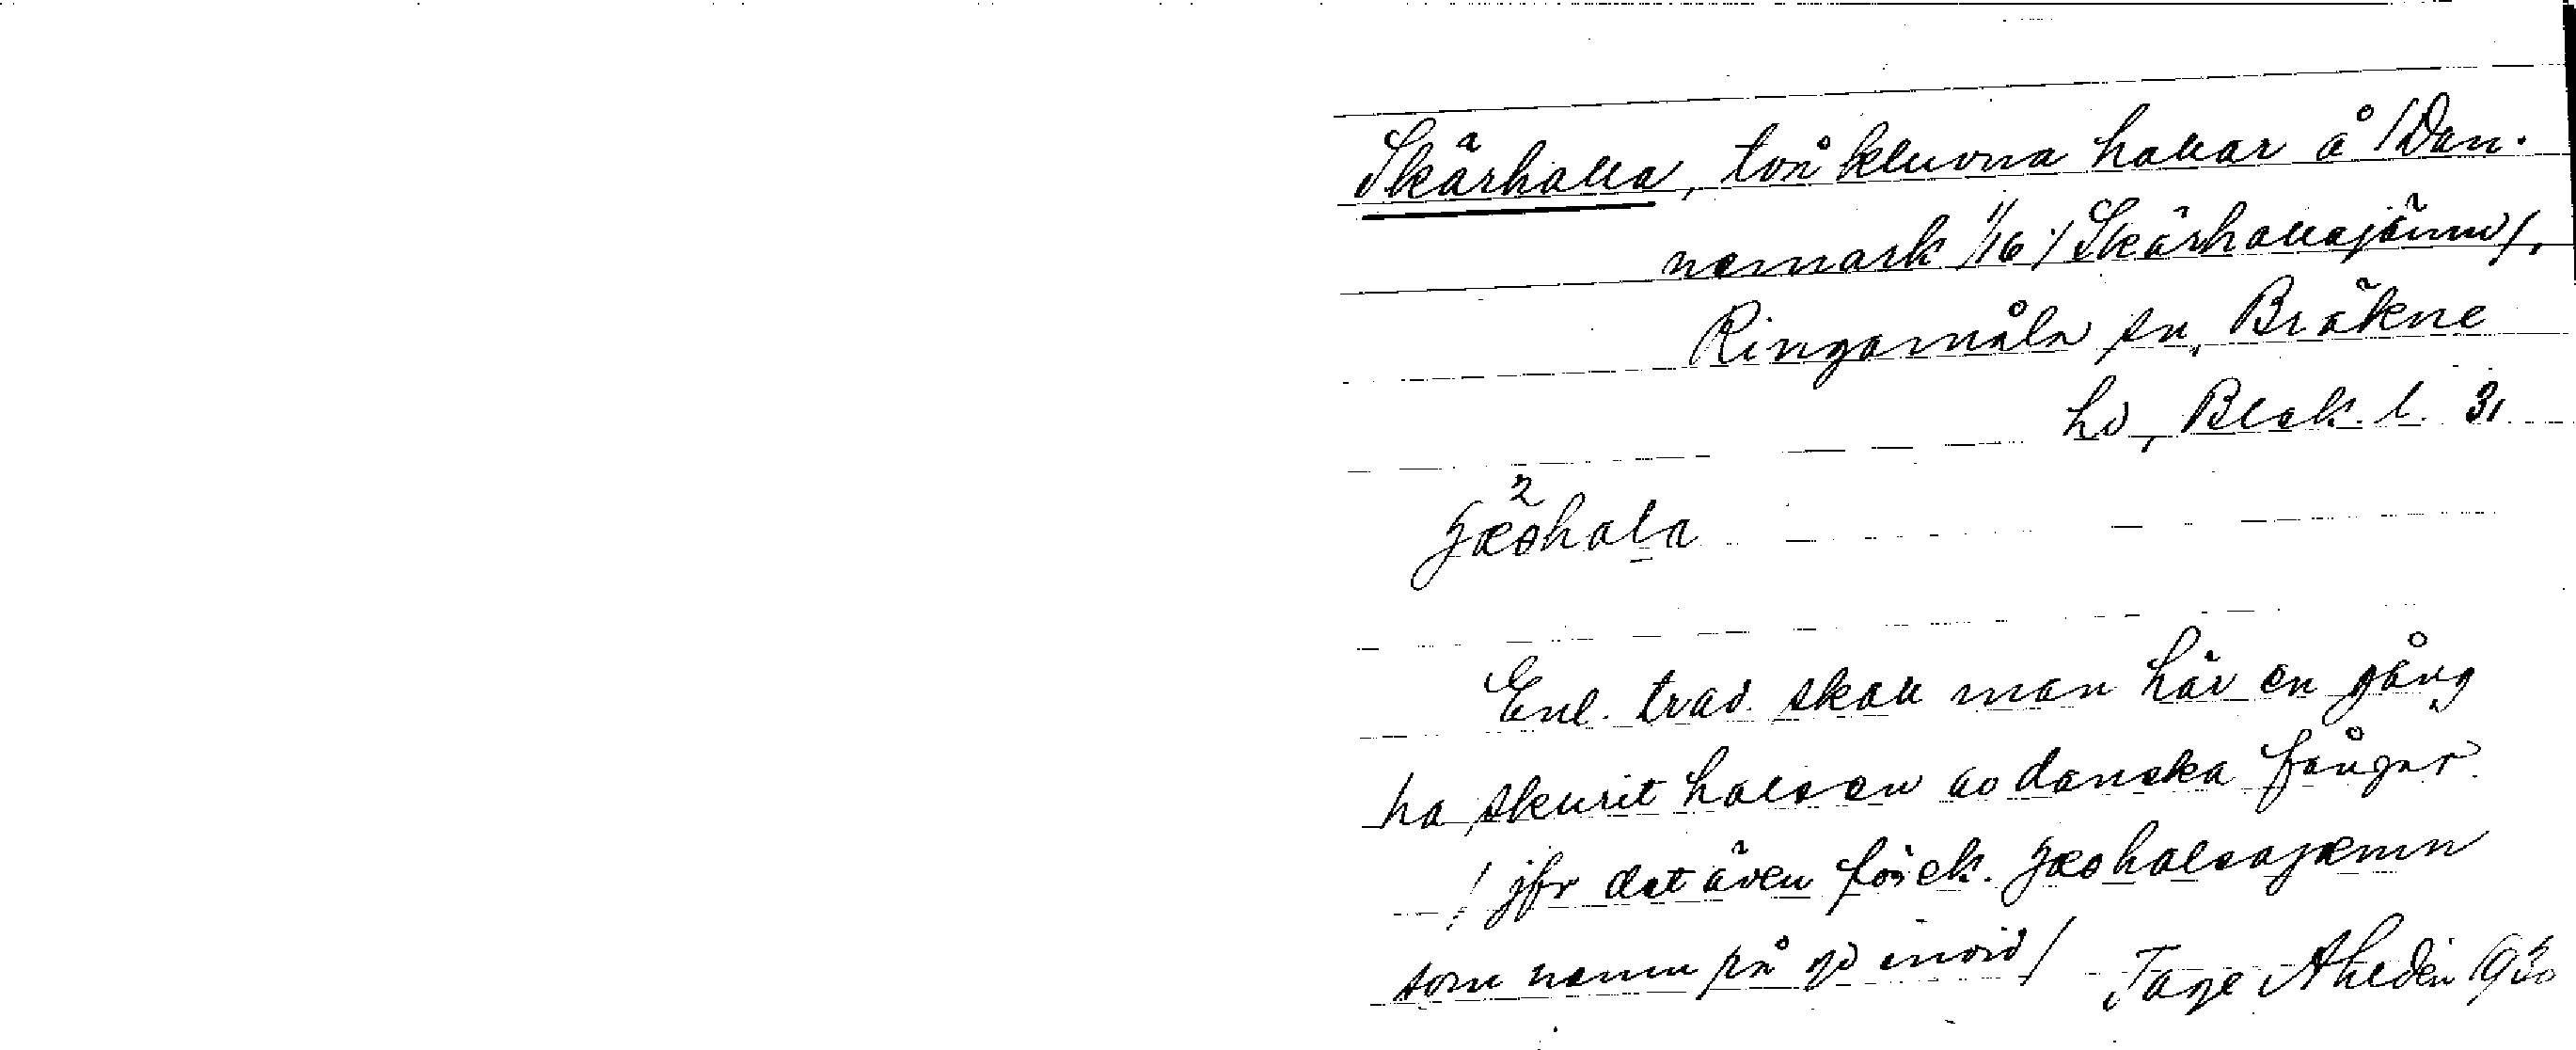 Skärhalla, två kluvna hallar å /Dan-
nemark 1/16 / Skärhallajämn/,
Ringamåla sn, Bräkne
hd, Blek. l. 31
Enl. trad. skall man här en gång
ha skurit halsen av danska fångar
/ jfr det även förek.
som namn på gd invid / Tage Ahldén 1930